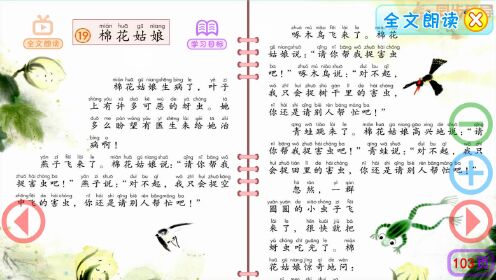 全文朗读
19 棉花姑娘
mián huā gū niang
学习目标
棉花姑娘生病了，叶子
上有许多可恶的蚜虫。她
多么盼望有医生来给她治
病啊！
燕子飞来了。棉花姑娘说：“请你帮我
捉害虫吧！”燕子说：“对不起，我只会捉空
中飞的害虫，你还是请别人帮忙吧！”
啄木鸟飞来了。棉花
姑娘说：“请你帮我捉害虫
吧！”啄木鸟说：“对不起，
我只会捉树干里的害虫，
你还是请别人帮忙吧！”
青蛙跳来了。棉花姑娘高兴地说：“请
你帮我捉害虫吧！”青蛙说：“对不起，我只
会捉田里的害虫，你还是请别人帮忙吧！”
忽然，一群
圆圆的小虫子飞
来了，很快就把
蚜虫吃光了。棉
花姑娘惊奇地问：
全文朗读
103页